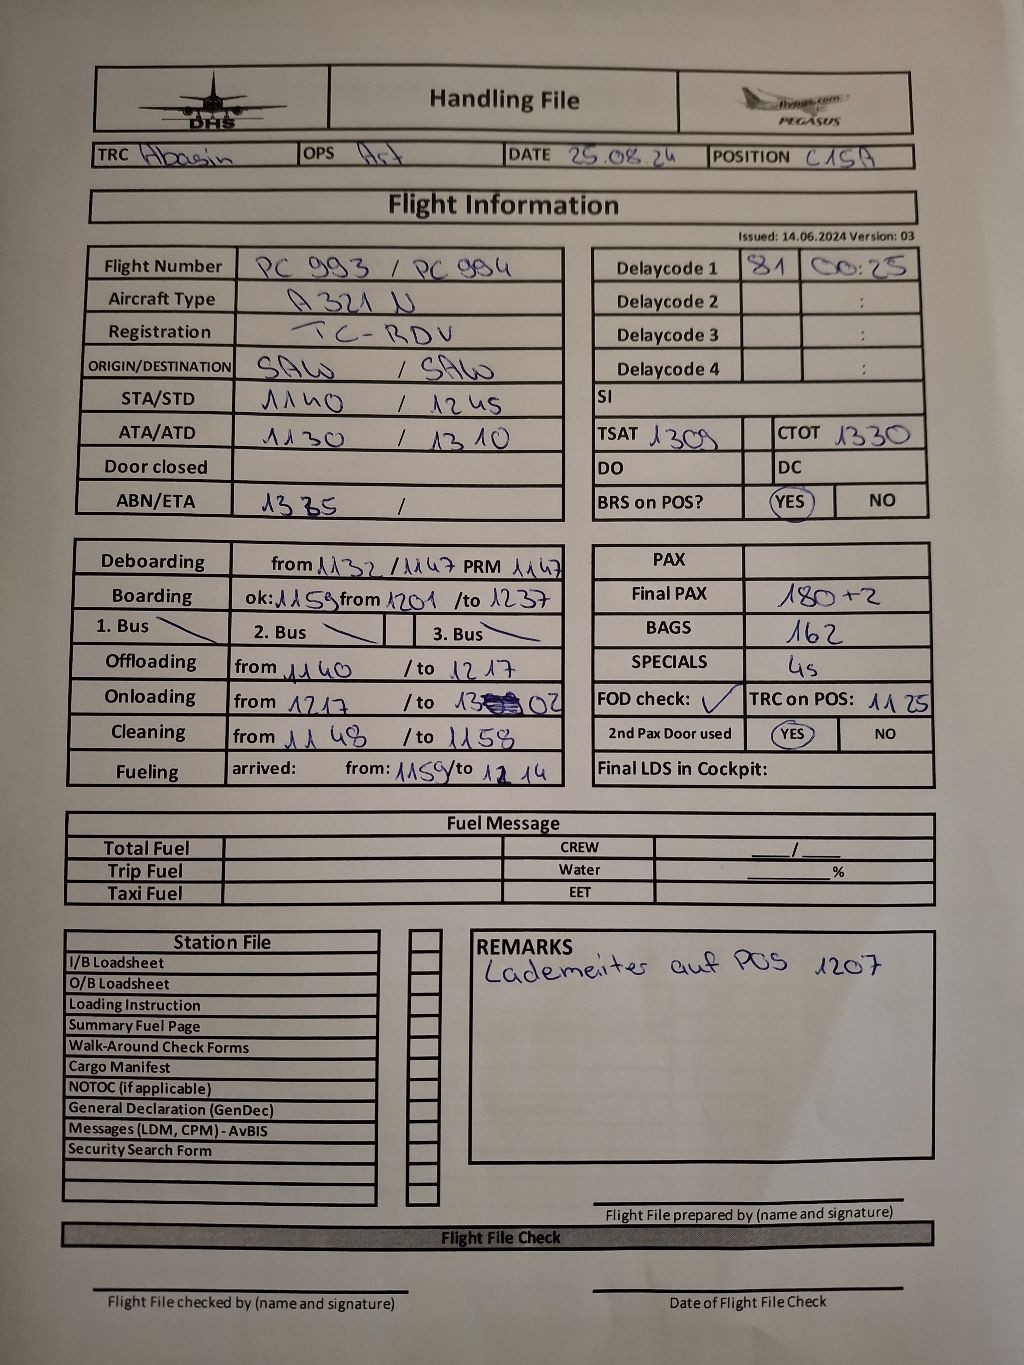 DHS
Handling File
flypgs.com
PEGASUS
TRC Abasin OPS Art DATE 25.08.24 POSITION C15A
Flight Information
Issued: 14.06.2024 Version: 03
Flight Number PC 993 / PC 994
Aircraft Type A321 N
Registration TC-RDV
ORIGIN/DESTINATION SAW / SAW
STA/STD 1140 / 1245
ATA/ATD 1130 / 1310
Door closed
ABN/ETA 1335 /
Delaycode 1 81 00:25
Delaycode 2 :
Delaycode 3 :
Delaycode 4 :
SI
TSAT 1309 CTOT 1330
DO DC
BRS on POS? YES NO
Deboarding from 1132 /1147 PRM 1147
Boarding ok: 1159 from 1201 /to 1237
1. Bus 2. Bus 3. Bus
Offloading from 1140 /to 1217
Onloading from 1217 /to 13 02
Cleaning from 1148 /to 1158
Fueling arrived: from: 1159/to 1214
PAX
Final PAX 180+2
BAGS 162
SPECIALS 4s
FOD check: ✓ TRC on POS: 1125
2nd Pax Door used YES NO
Final LDS in Cockpit:
Fuel Message
Total Fuel CREW ___/___
Trip Fuel Water ________%
Taxi Fuel EET
Station File
I/B Loadsheet
O/B Loadsheet
Loading Instruction
Summary Fuel Page
Walk-Around Check Forms
Cargo Manifest
NOTOC (if applicable)
General Declaration (GenDec)
Messages (LDM, CPM) - AvBIS
Security Search Form
REMARKS
Lademeister auf POS 1207
Flight File prepared by (name and signature)
Flight File Check
Flight File checked by (name and signature)
Date of Flight File Check